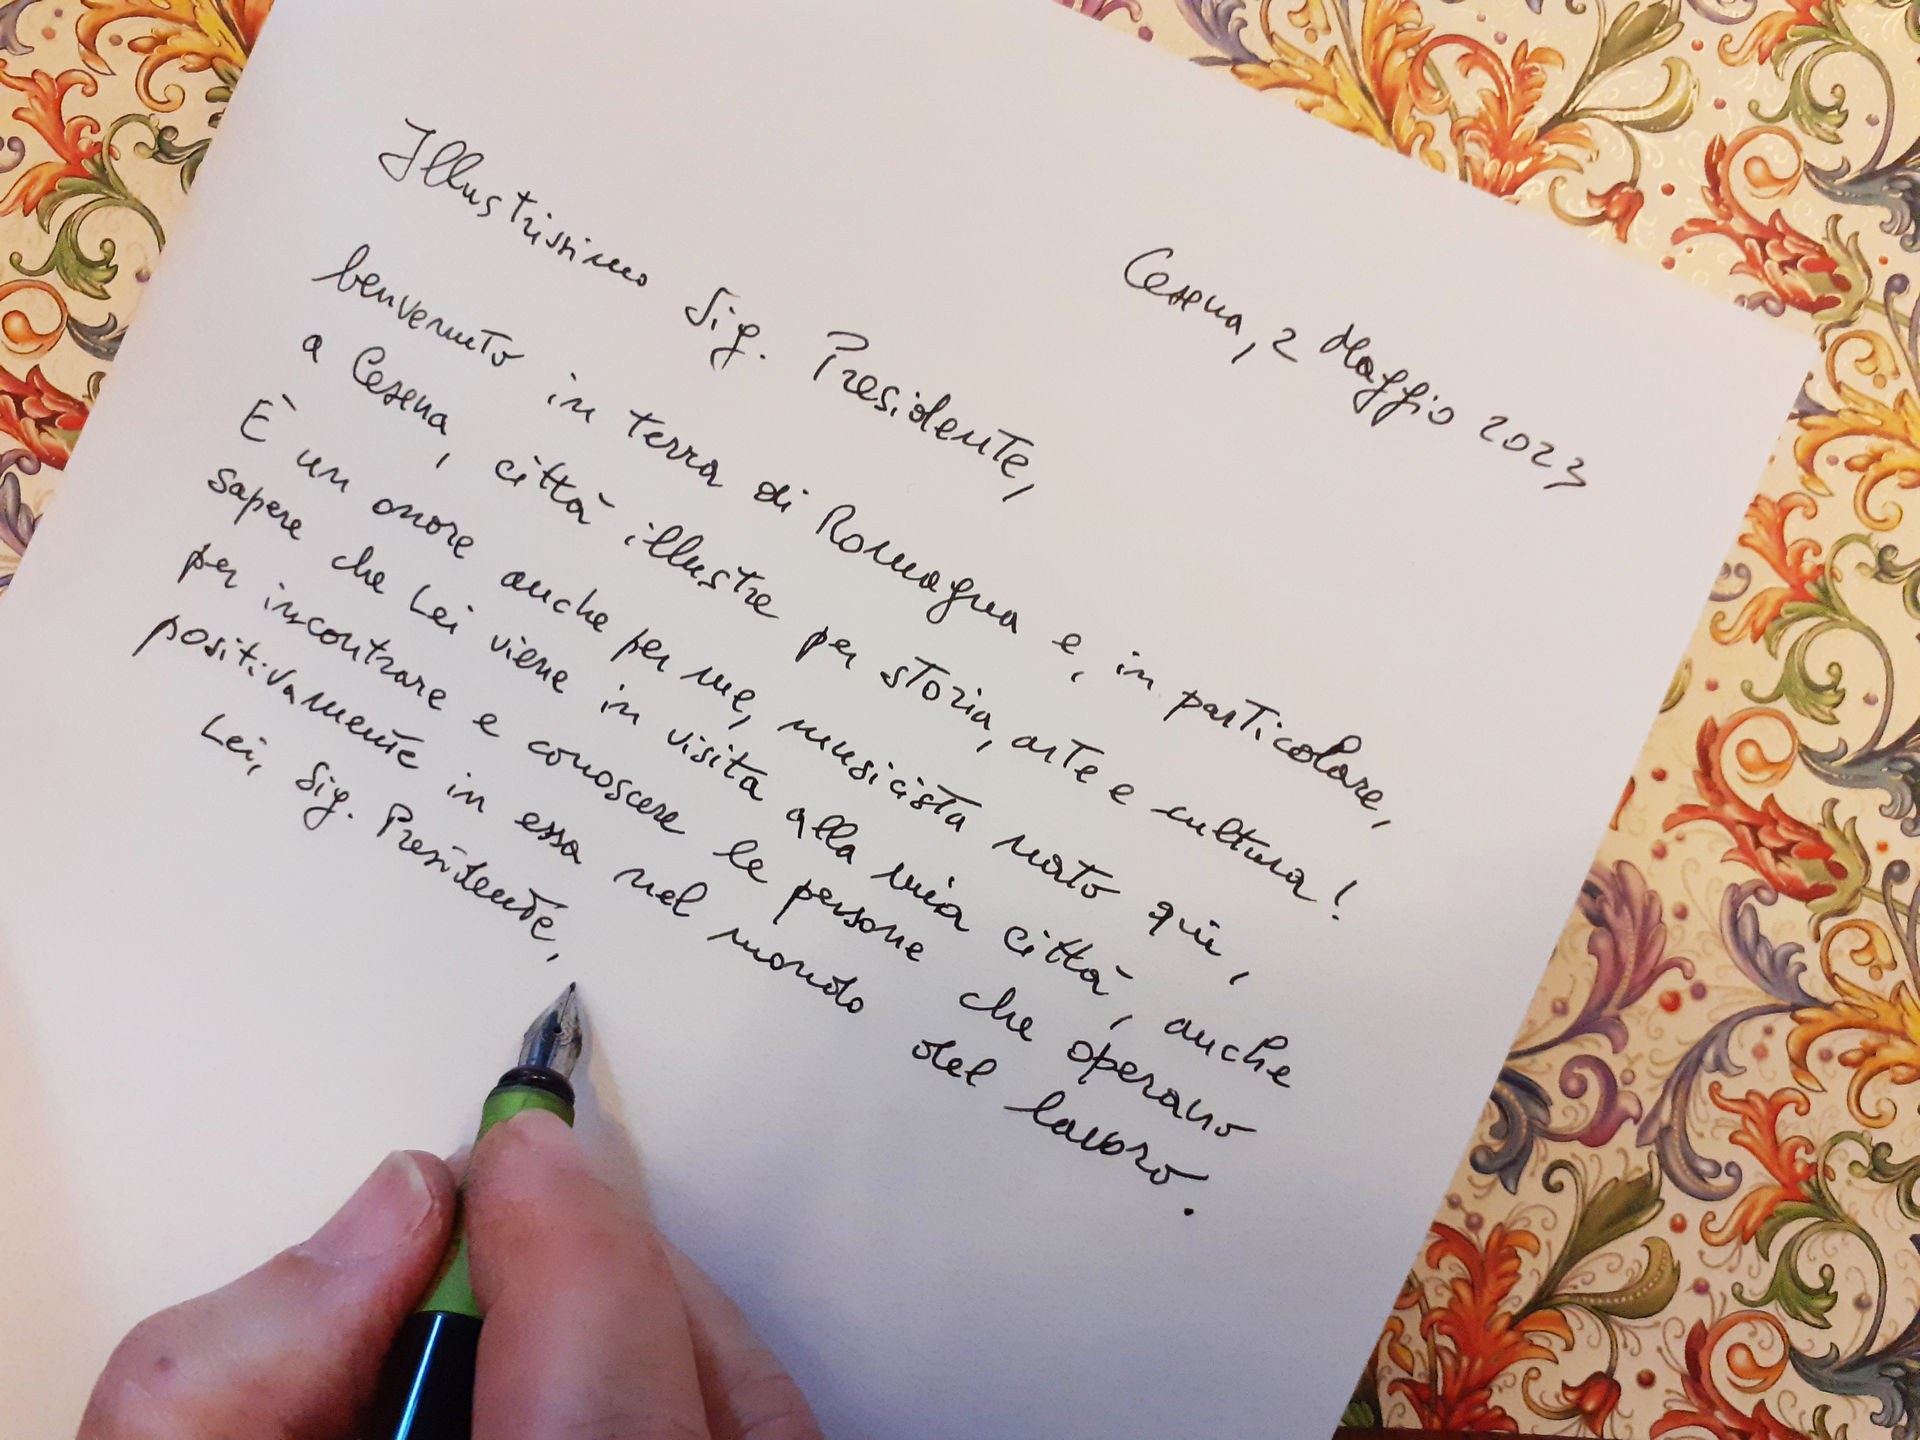 Cesena, 2 Maggio 2023
Illustrissimo Sig. Presidente,
benvenuto in terra di Romagna e, in particolare,
a Cesena, città illustre per storia, arte e cultura!
È un onore anche per me, musicista nato qui,
sapere che Lei viene in visita alla mia città, anche
per incontrare e conoscere le persone che operano
positivamente in essa nel mondo del lavoro.
Lei, Sig. Presidente,